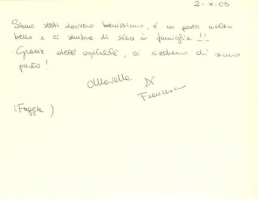 2-X-05
Siamo stati davvero benissimo, è un posto molto
bello e ci sembra di stare in famiglia !!
Grazie dell'ospitalità, ci rivedremo di sicuro
presto!
Marella &
Francesco
(Foggia)